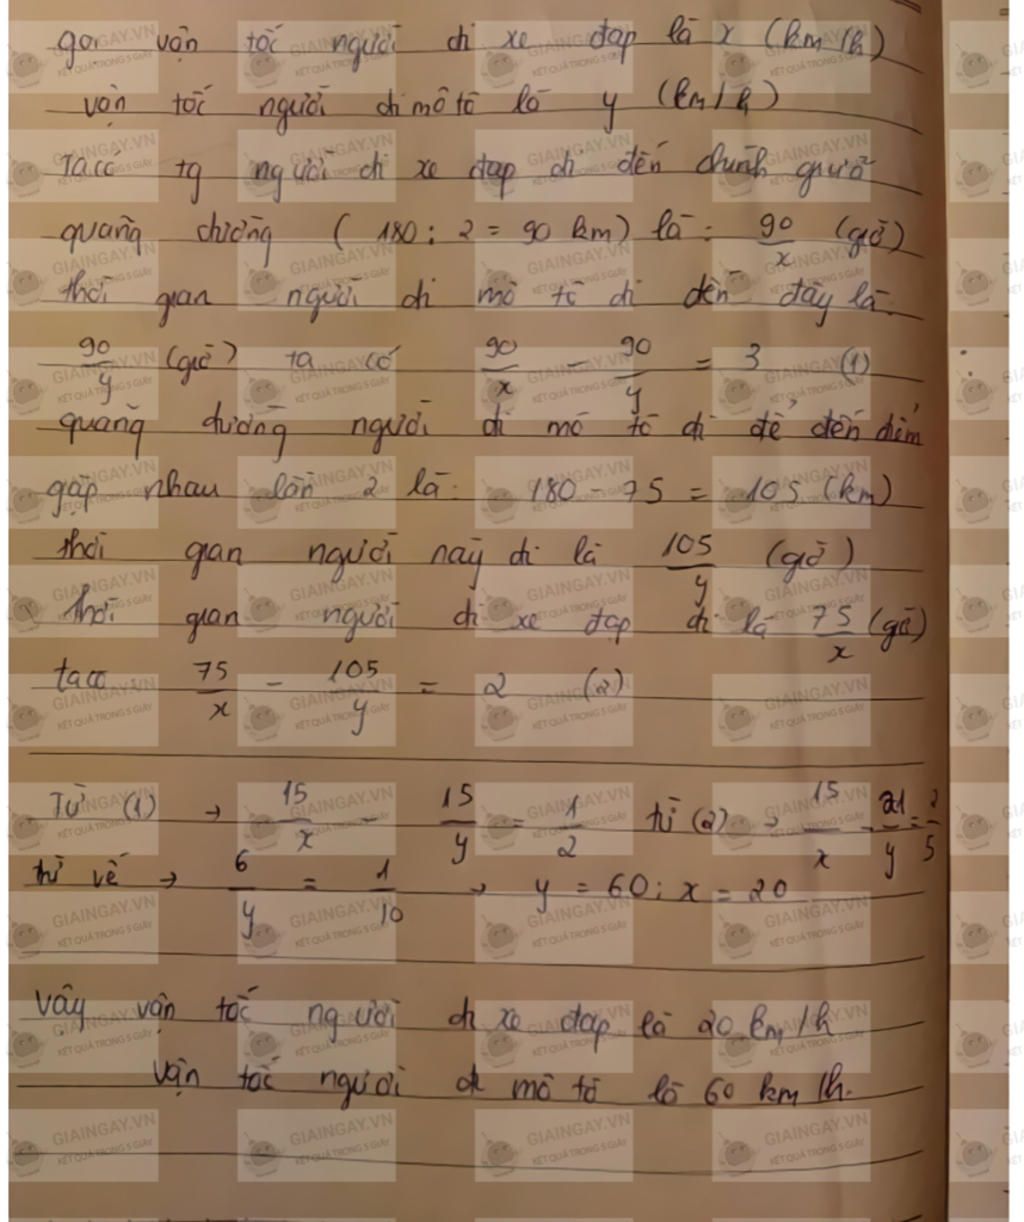 gọi vận tốc người đi xe đạp là x (km/h)
vận tốc người đi mô tô là y (km/h)
Ta có tg người đi xe đạp đi đến chính giữa
quãng đường (180 : 2 = 90 km) là : 90/x (giờ)
thời gian người đi mô tô đi đến đây là
90/y (giờ) ta có 90/x - 90/y = 3 (1)
quãng đường người đi mô tô đi để đến điểm
gặp nhau lần 2 là : 180 - 75 = 105 (km)
thời gian người này đi là 105/y (giờ)
thời gian người đi xe đạp đi là 75/x (giờ)
ta có 75/x - 105/y = 2 (2)
Từ (1) → 15/x - 15/y = 1/2 từ (2) → 15/x - 21/y = 2/5
từ vế → 6/y = 1/10 → y = 60 ; x = 20
Vậy vận tốc người đi xe đạp là 20 km/h
vận tốc người đi mô tô là 60 km/h.
GIAINGAY.VN
KẾT QUẢ TRONG 5 GIÂY